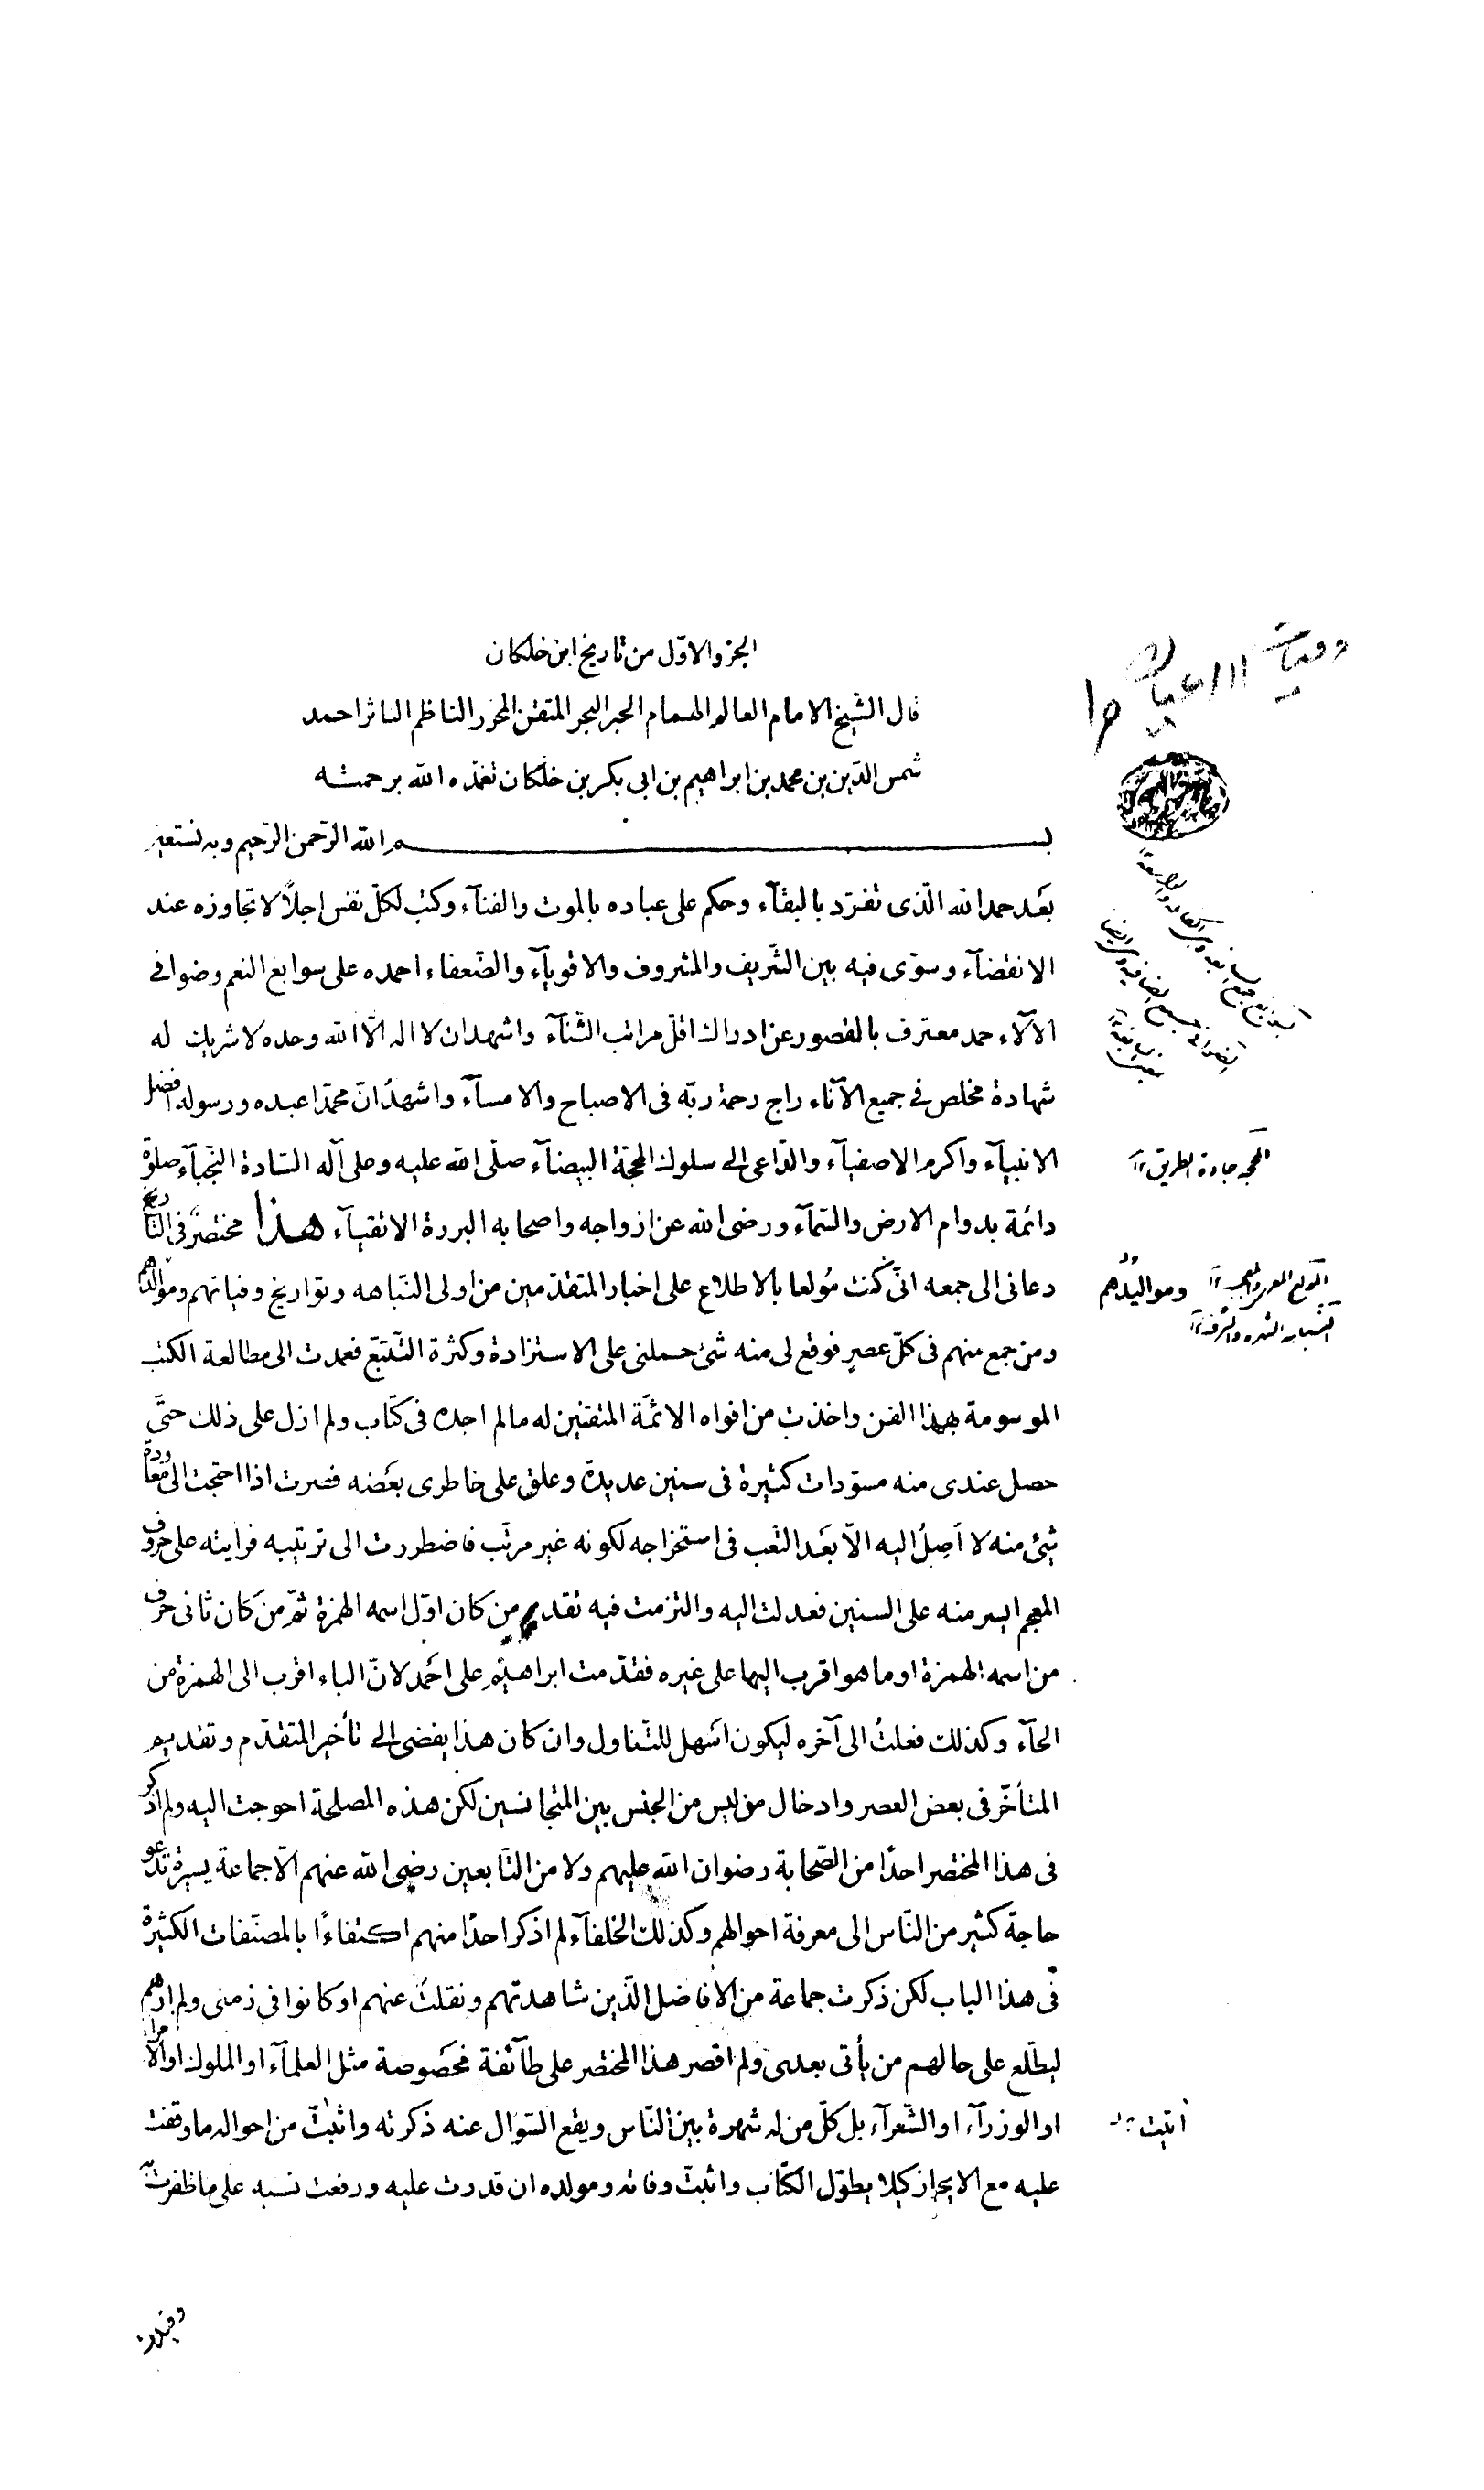 الجزء الاوّل من تاريخ ابن خلكان
قال الشيخ الامام العالم الهمام الحبر البحر المتقن المحرر الناظم الناثر احمد
شمس الدّين بن محمد بن ابراهيم بن ابى بكر بن خلّكان تغمّده الله برحمته
بسم الله الرّحمن الرّحيم وبه نستعين
بعَد حمد الله الّذى تفرّد بالبقآء وحكم على عباده بالموت والفنآء وكتب لكلّ نفس اجلاً لا تجاوزه عند
الانقضآء وسوّى فيه بين الشّريف والمشروف والاقويآء والضّعفاء احمده على سوابغ النعم وضوافى
الآلاء حمد معترف بالقصور عن ادراك اقلّ مراتب الثّنآء واشهد ان لا اله الّا الله وحده لا شريك له
شهادة مخلص فى جميع الآناء راج رحمة ربّه فى الاصباح والامسآء واشهدُ انّ محمّدا عبده ورسوله افضل
الانبيآء واكرم الاصفيآء والدّاعى الى سلوك المحجّة البيضآء صلّى الله عليه وعلى آله السّادة النّجبآء صلوة
دائمة بدوام الارض والسّمآء ورضى الله عن ازواجه واصحابه البررة الاتقيآء هذا مختصرٌ فى التّاريخ
دعانى الى جمعه انّى كنت مُولعا بالاطلاع على اخبار المتقدّمين من اولى النّباهه وتواريخ وفياتهم وموالدهم
ومن جمع منهم فى كلّ عصرٍ فوقع لى منه شئ حملنى على الاستزادة وكثرة التّتبّع فعمدت الى مطالعة الكتب
الموسومة بهذا الفن واخذت من افواه الائمّة المتقنين له مالم اجده فى كتاب ولم ازل على ذلك حتّى
حصل عندى منه مسوّدات كثيرة فى سنين عديدة وعلق على خاطرى بعَضه فصرت اذا احتجت الى معاودة
شئ منه لا اَصِلُ اليه الاّ بعَد التّعب فى استخراجه لكونه غير مرتّب فاضطررت الى ترتيبه فرايته على حروف
المعجم ايسر منه على السنين فعدلت اليه والتزمت فيه تقديم من كان اوّل اسمه الهمزة ثمّ من كان ثانى حرف
من اسمه الهمزة او ما هو اقرب اليها على غيره فقدّمت ابراهيم على احَمد لانّ الباء اقرب الى الهمزة من
الحآء وكذلك فعلتُ الى آخره ليكون اسَهل للتّناول وان كان هذا يفضى الى تأخير المتقدّم وتقديم
المتأخّر فى بعض العصر وادخال من ليس من الجنس بين المتجانسين لكن هذه المصلحة احوجت اليه ولم اذكر
فى هذا المختصر احدًا من الصّحابة رضوان الله عليهم ولا من التّابعين رضى الله عنهم الّا جماعة يسيرة تدعو
حاجة كثير من النّاس الى معرفة احوالهم وكذلك الخلفآء لم اذكر احدًا منهم اكتفاءًا بالمصنّفات الكثيرة
فى هذا الباب لكن ذكرت جماعة من الافاضل الّذين شاهدتهم ونقلتُ عنهم او كانوا فى زمنى ولم ارهم
ليطّلع على حالهم من يأتى بعدى ولم اقصر هذا المختصر على طآئفة مخصَوصة مثل العلمآء او الملوك او الامرآء
او الوزرآء او الشّعرآء بل كلّ من له شهرة بين النّاس ويقع السّؤال عنه ذكرته واثبتّ من احواله ما وقفت
عليه مع الايجاز كيلا يطوّل الكتاب واثبتّ وفاته ومولده ان قدرت عليه ورفعت نسبه على ما ظفرت به
وفيات الاعيان
المحجه جادة الطريق
المولع المغرى
ومواليدهم
اثبت
وقيدت